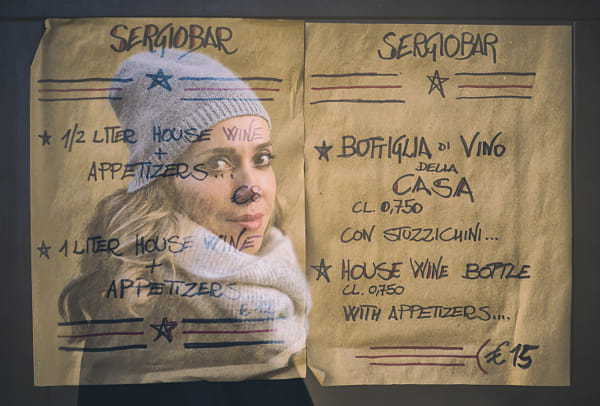 SERGIOBAR
1/2 LITER HOUSE WINE
+
APPETIZERS...
€8
1 LITER HOUSE WINE
+
APPETIZERS
SERGIOBAR
BOTTIGLIA DI VINO
DELLA
CASA
CL. 0,750
CON STUZZICHINI...
HOUSE WINE BOTTLE
CL. 0,750
WITH APPETIZERS....
€15